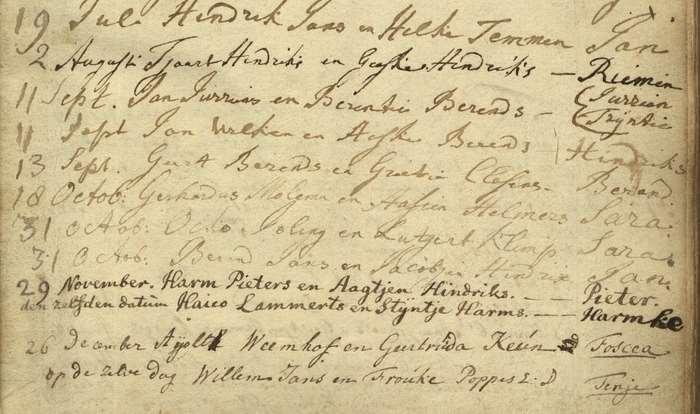 19 Julii Hindrik Jans en Hilke Temmen Jan
2 Augusti Tjaart Hindriks en Geeske Hindriks — Riemen
11 Sept. Jan Jurrius en Berentie Berends — Jurrien
Trÿntie
11 Sept Jan Welken en Aafke Berends Hindriks
13 Sept. Geert Berends en Grietie Clasens — Berend
18 Octob: Gerhardus Molema en Helmers Sara.
31 octob: Ocko en Lutgert Klimp. Sara.
31 octob: Berend Jans en Jacobjen Hindrix Jan
29 November. Harm Pieters en Aagtjen Hindriks. — Pieter.
den zelfden datum Haico Lammerts en Stÿntje Harms. — Harmke
26 December Weemhof en Geertruda Keún Foscea
op de zelve dag Willem Jans en Frouke Poppes Tenje